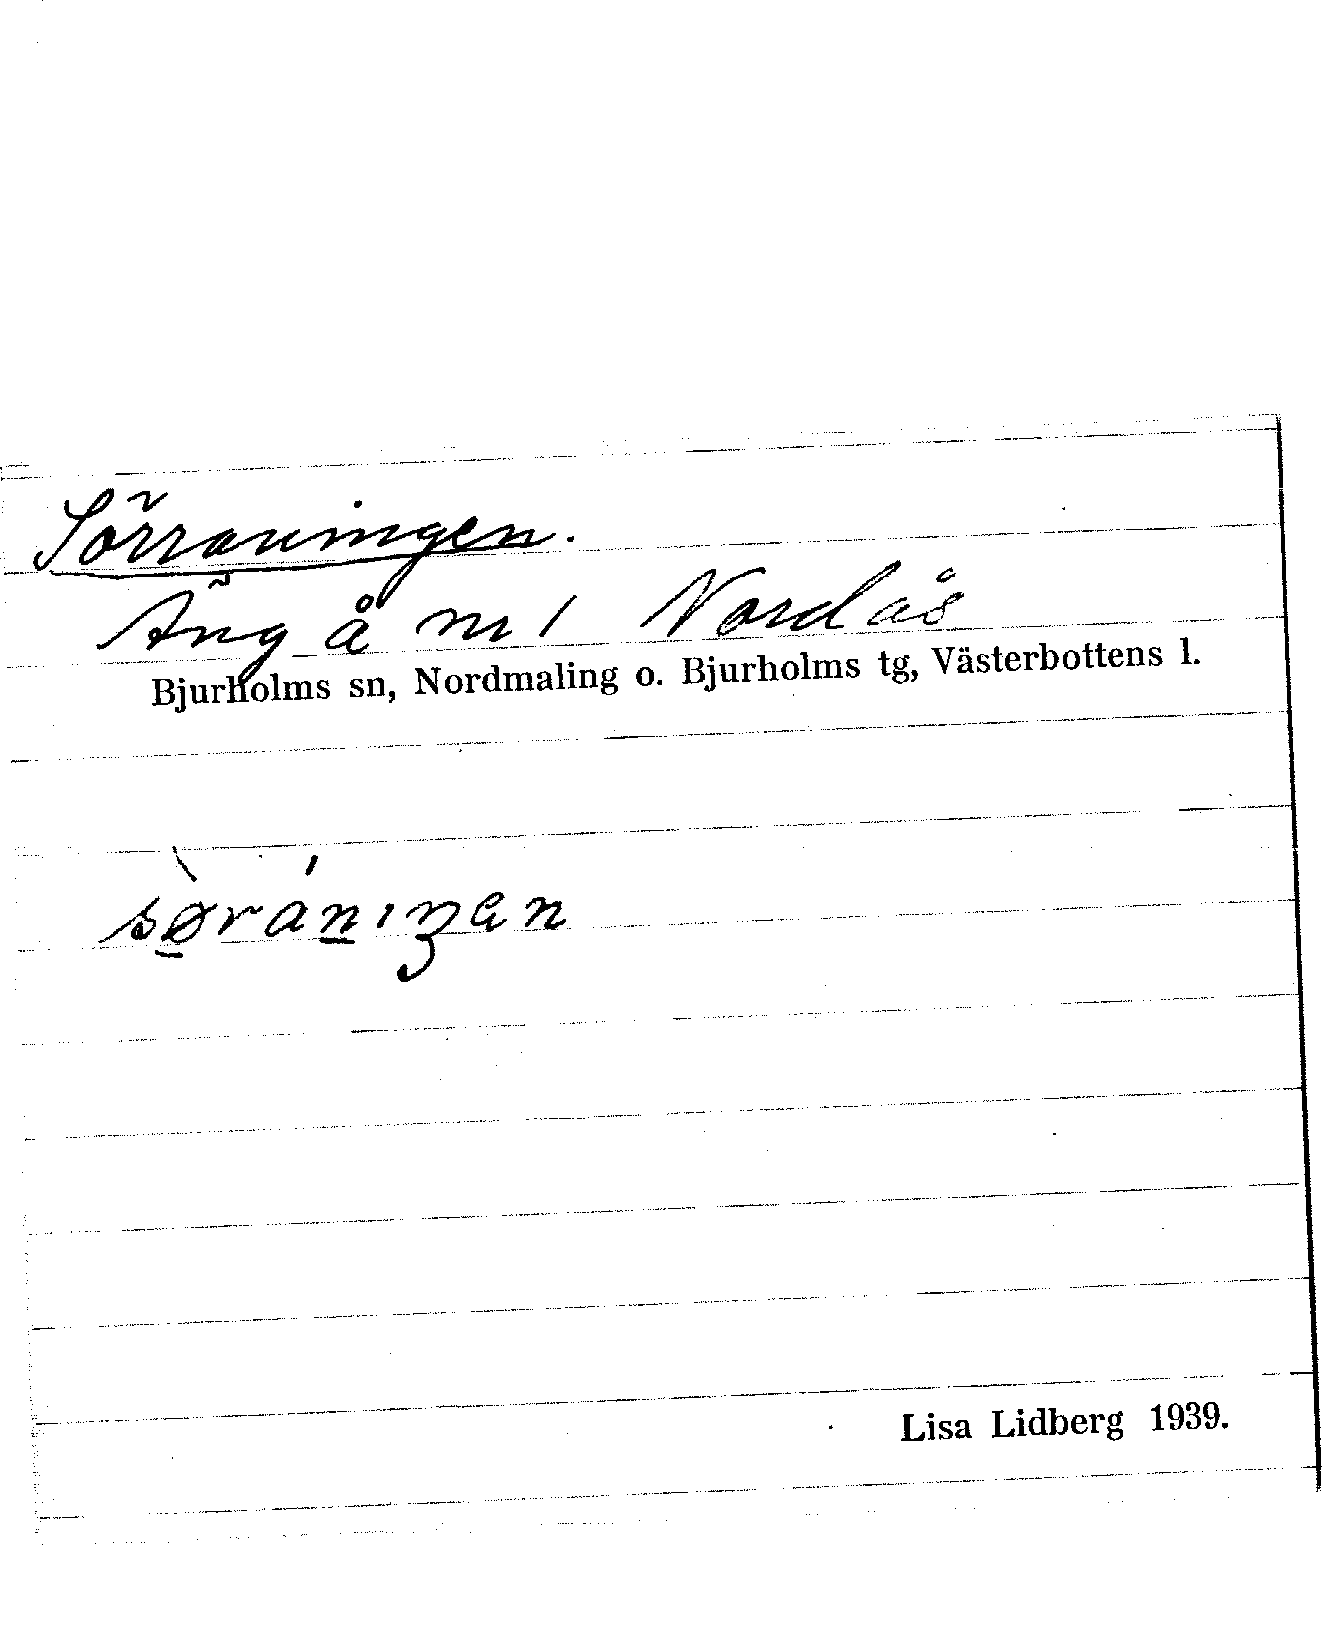 Sörraningen.
Äng å nr 1 Nordås
Bjurholms sn, Nordmaling o. Bjurholms tg, Västerbottens l.
Lisa Lidberg 1939.